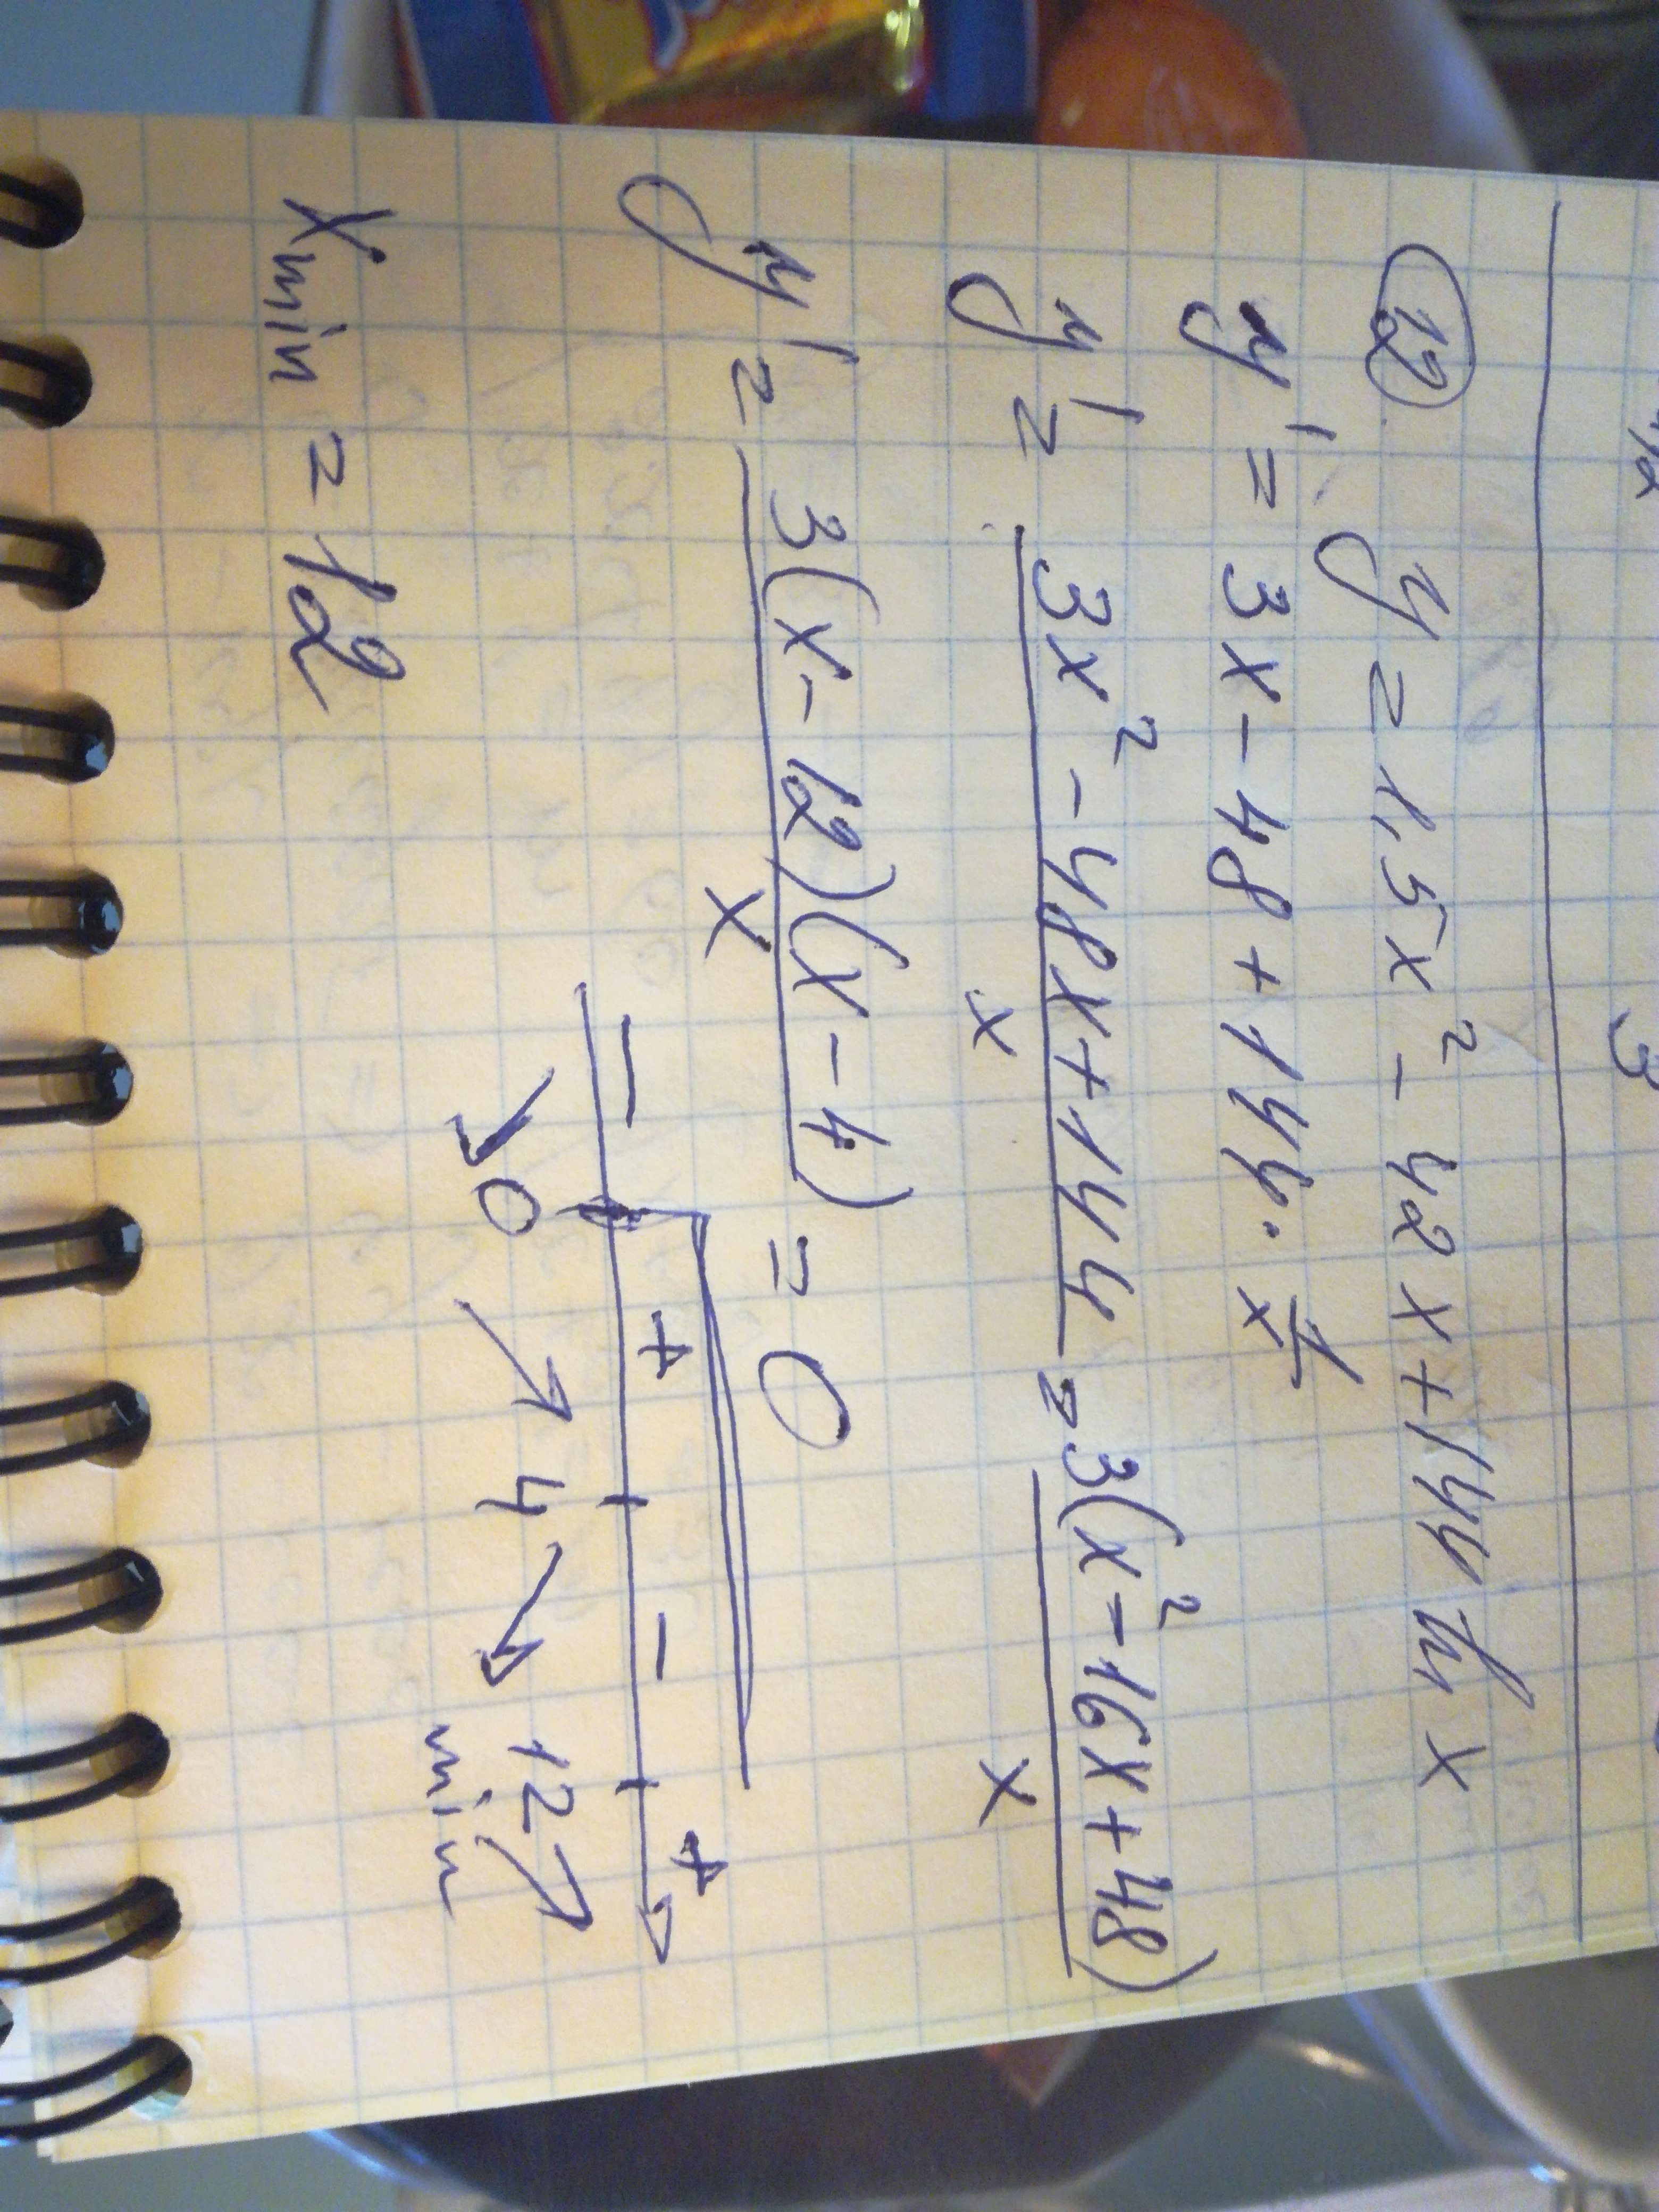 12 y = 1,5x² - 42x + 144 ln x
y' = 3x - 48 + 144 · 1/x
y' = (3x² - 48x + 144)/x = 3(x² - 16x + 48)/x
y' = 3(x - 12)(x - 4)/x = 0
- + - +
0 4 12
min
Xmin = 12